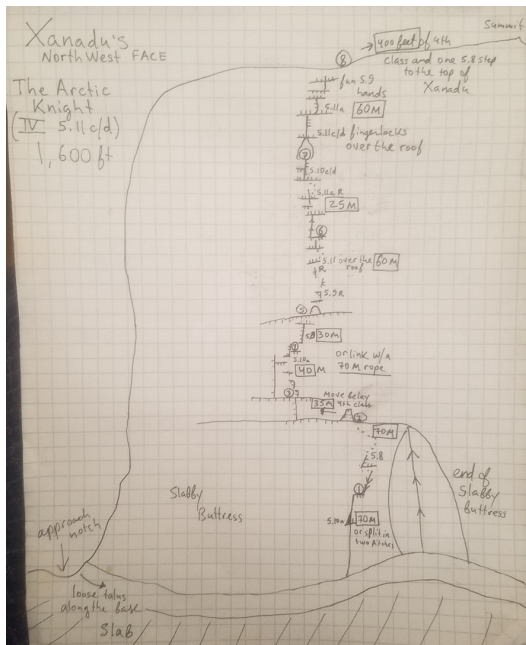 Xanadu's
NorthWest FACE
The Arctic
Knight
(IV 5.11c/d)
1,600 ft
Summit
400 feet of 4th
class and one 5.8 step
to the top of
Xanadu
8
fun 5.9
hands
5.11a
60M
5.11c/d fingerlocks
over the roof
7
5.10c/d
5.11a R
25M
6
5.11 over the
roof
60M
R
5.9R
5
5.8
30M
or link w/a
70M rope
40M
3
move belay
4th class
35M
2
70M
5.8
1
70M
or split in
two pitches
end of
slabby
buttress
Slabby
Buttress
approach
notch
loose talus
along the base
Slab